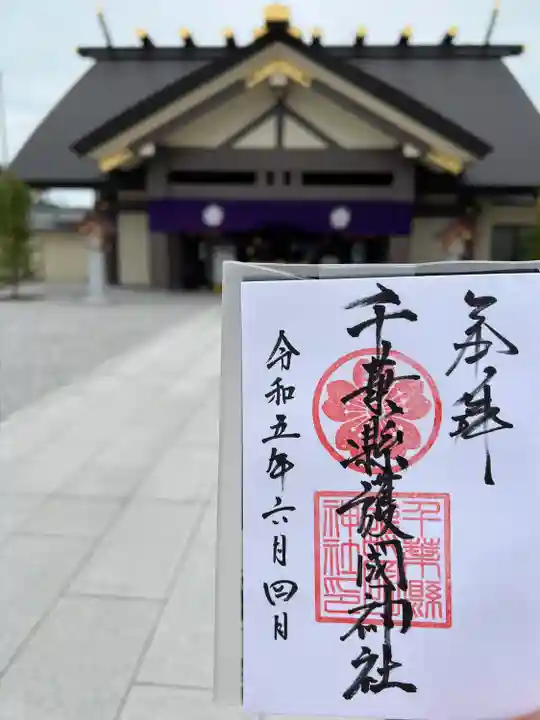 奉拝
千葉縣護國神社
千葉縣
神社印
令和五年六月四日